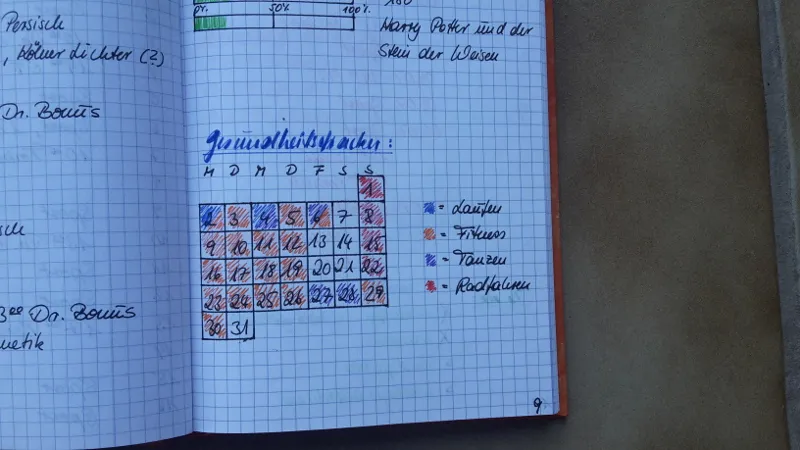 Persisch
, Kölner Lichter (?)
Dr. Bonus
Dr. Bonus
netik
0%. 50% 100%.
Harry Potter und der
Stein der Weisen
Gesundheitstracker:
M D M D F S S
1
2 3 4 5 6 7 8
9 10 11 12 13 14 15
16 17 18 19 20 21 22
23 24 25 26 27 28 29
30 31
= Laufen
= Fitness
= Tanzen
= Radfahren
9